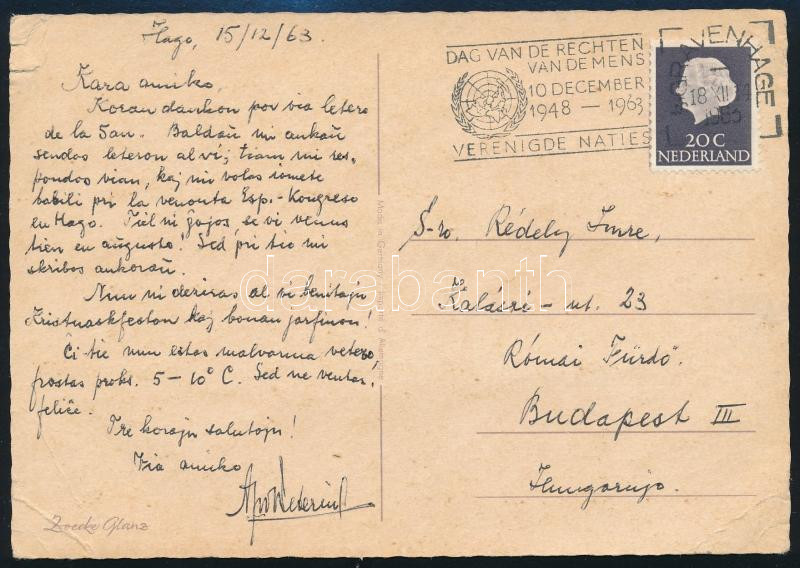 Hago, 15/12/63.
Kara amiko,
Koran dankon por via letero
de la San. Baldaŭ mi ankaŭ
sendos leteron al vi; tiam mi res-
pondos vian, kaj mi volas iomete
babili pri la venonta Esp.-Kongreso
en Hago. Tiel mi ĝojos se vi venus
tien en aŭgusto! Sed pri tio mi
skribos ankoraŭ.
Nun mi deziras al vi benitajn
Kristnaskfeston kaj bonan jarfinon!
Ĉi tie nun estas malvarma vetero,
frostas proks. 5-10° C. Sed ne ventas,
feliĉe.
Tre korajn salutojn!
Via amiko
Zoecke Glanz
Made in Germany
DAG VAN DE RECHTEN
VAN DE MENS
10 DECEMBER
1948 — 1963
VERENIGDE NATIES
'S-GRAVENHAGE
18 XII
1963
20 C
NEDERLAND
S-ro. Rédely Imre,
Kalászi-ut. 23
Római Fürdő.
Budapest III
Hungarujo.
darabanth